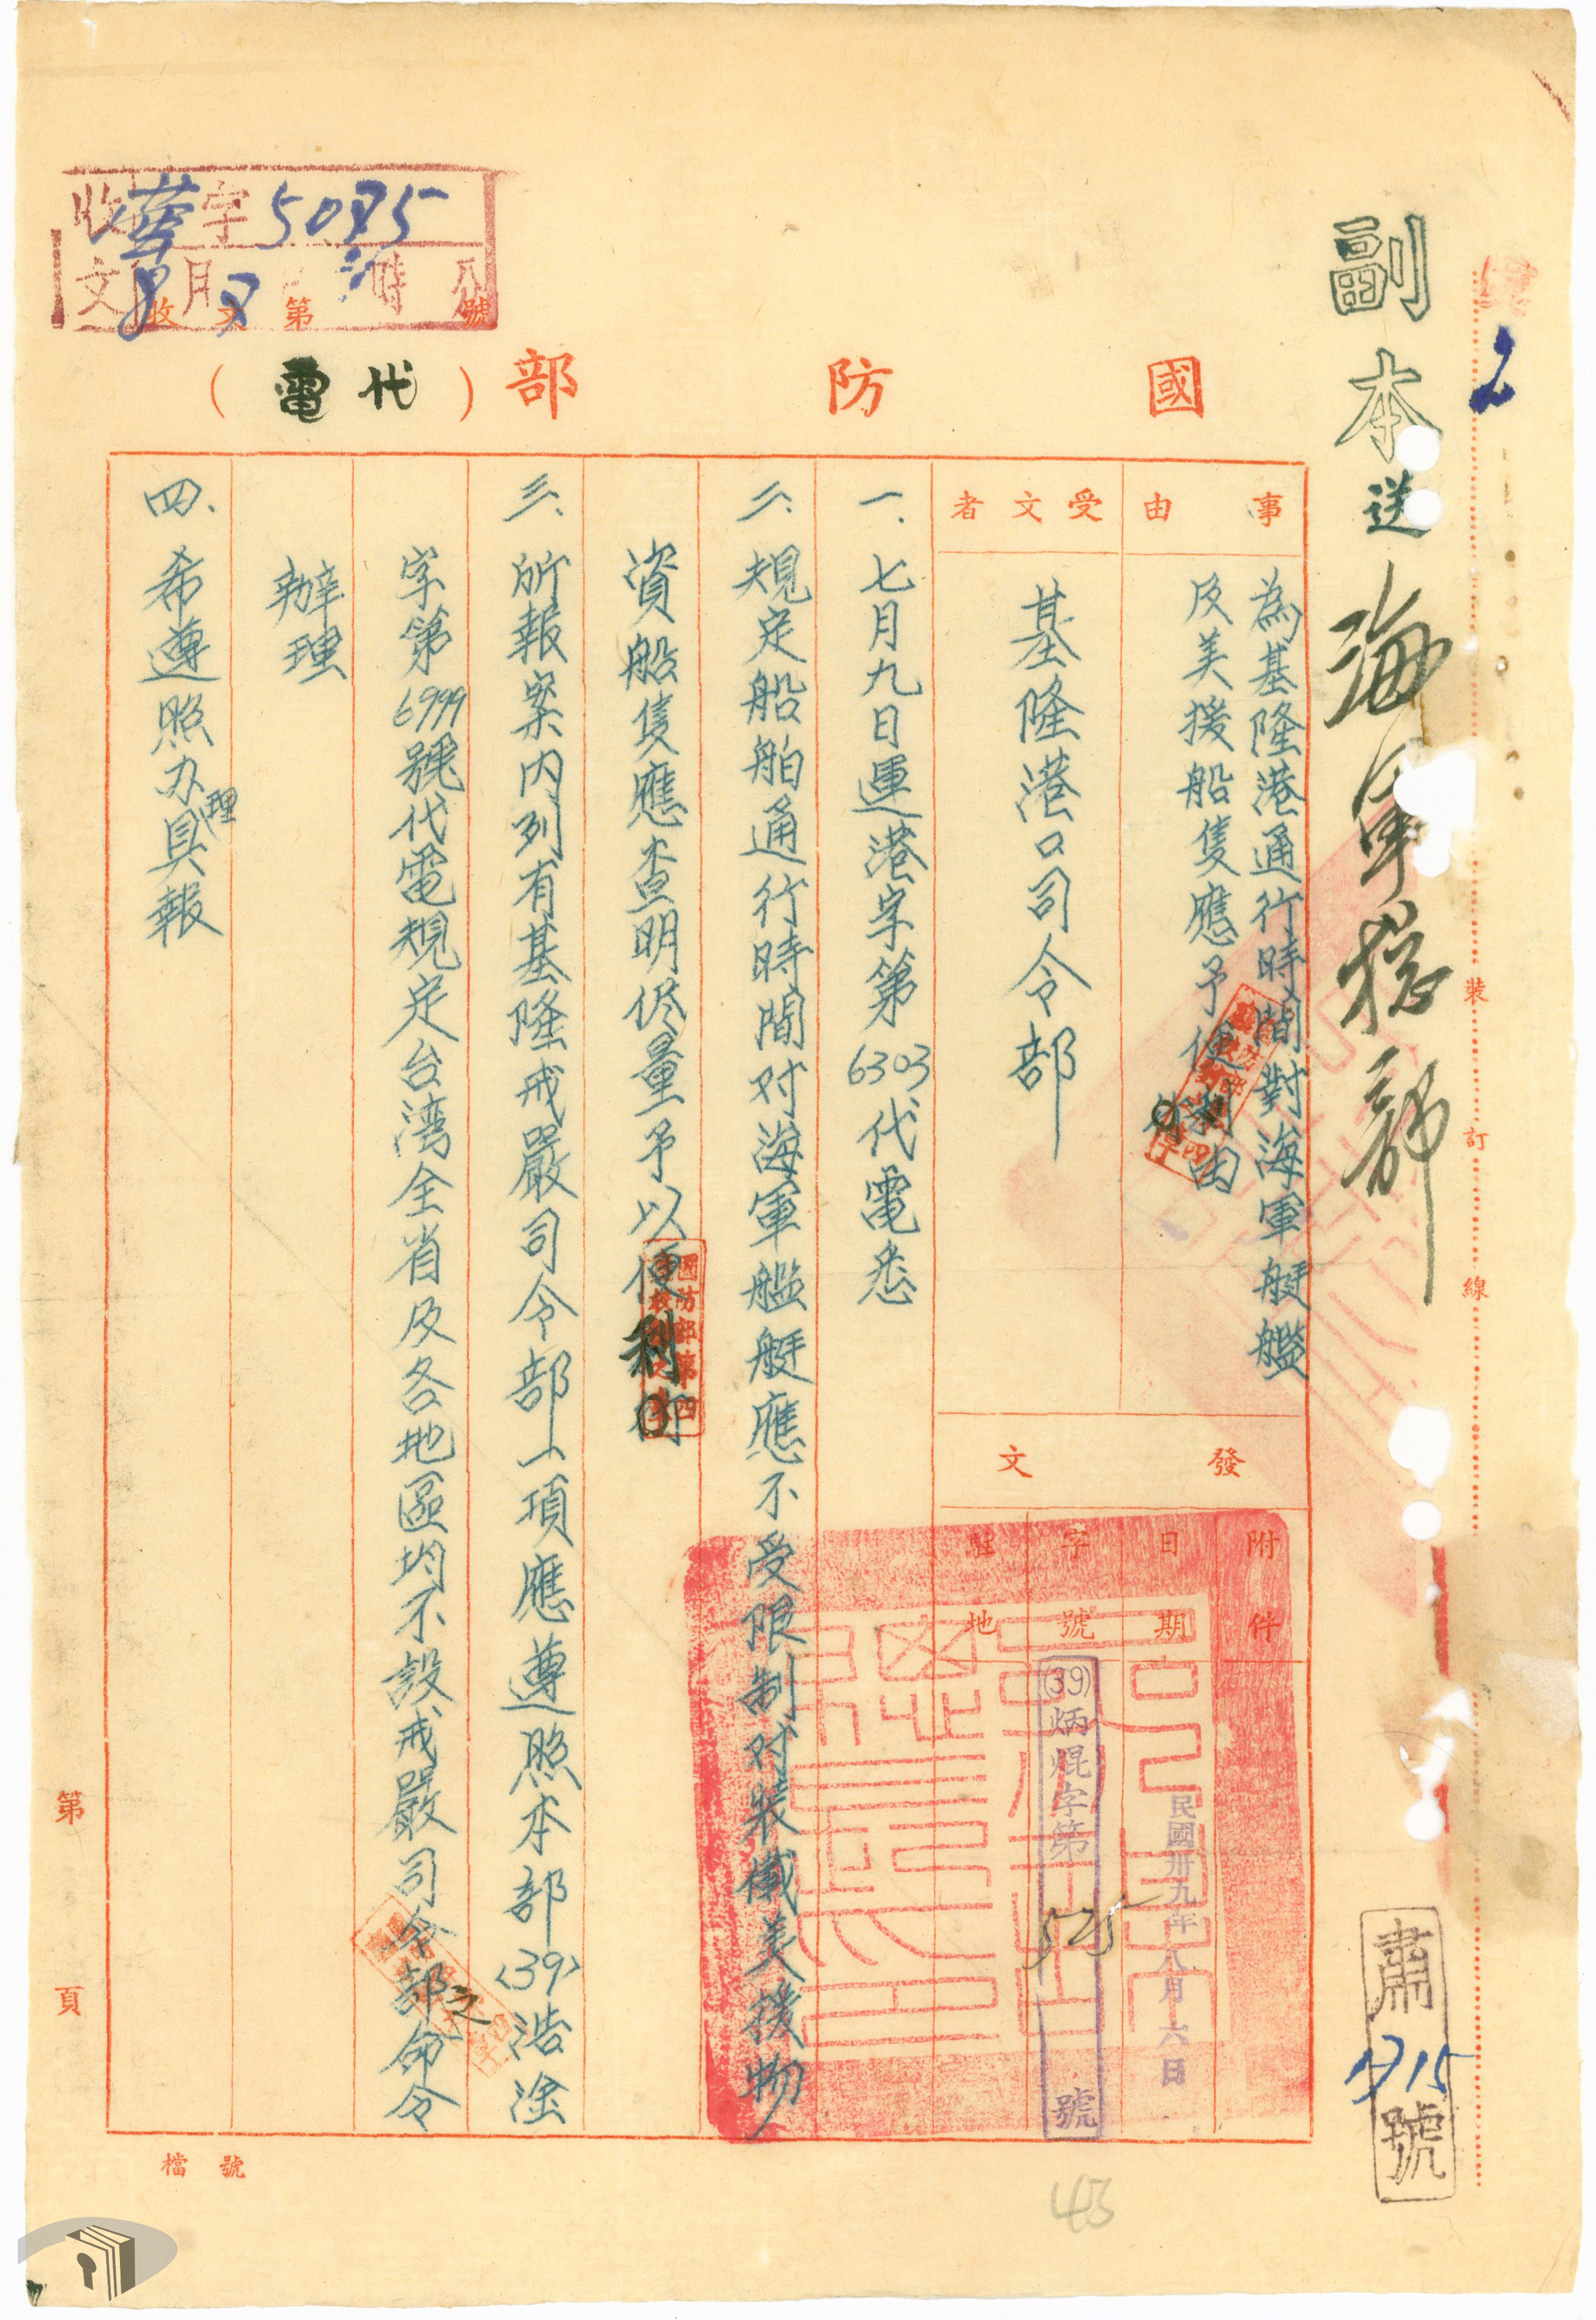 副本送海軍總部
國防部（代電）
事由
為基隆港通行時間對海軍艇艦
及美援船隻應予便利由
受文者
基隆港口司令部
發文
附件
日期
民國卅九年八月六日
字號
(39)炳焜字第525號
駐地
一、七月九日運港字第6303代電悉
二、規定船舶通行時間对海軍艦艇應不受限制对裝儎美援物
資船隻應查明侭量予以便利
三、所報案内列有基隆戒嚴司令部一項應遵照本部(39)浩淦
字第6999號代電規定台湾全省及各地區均不設戒嚴司令部之命令
辦理
四、希遵照办理具報
收文 字5075
月 時
收文第 號
肅1715號
裝訂線
第 頁
檔號
43
2